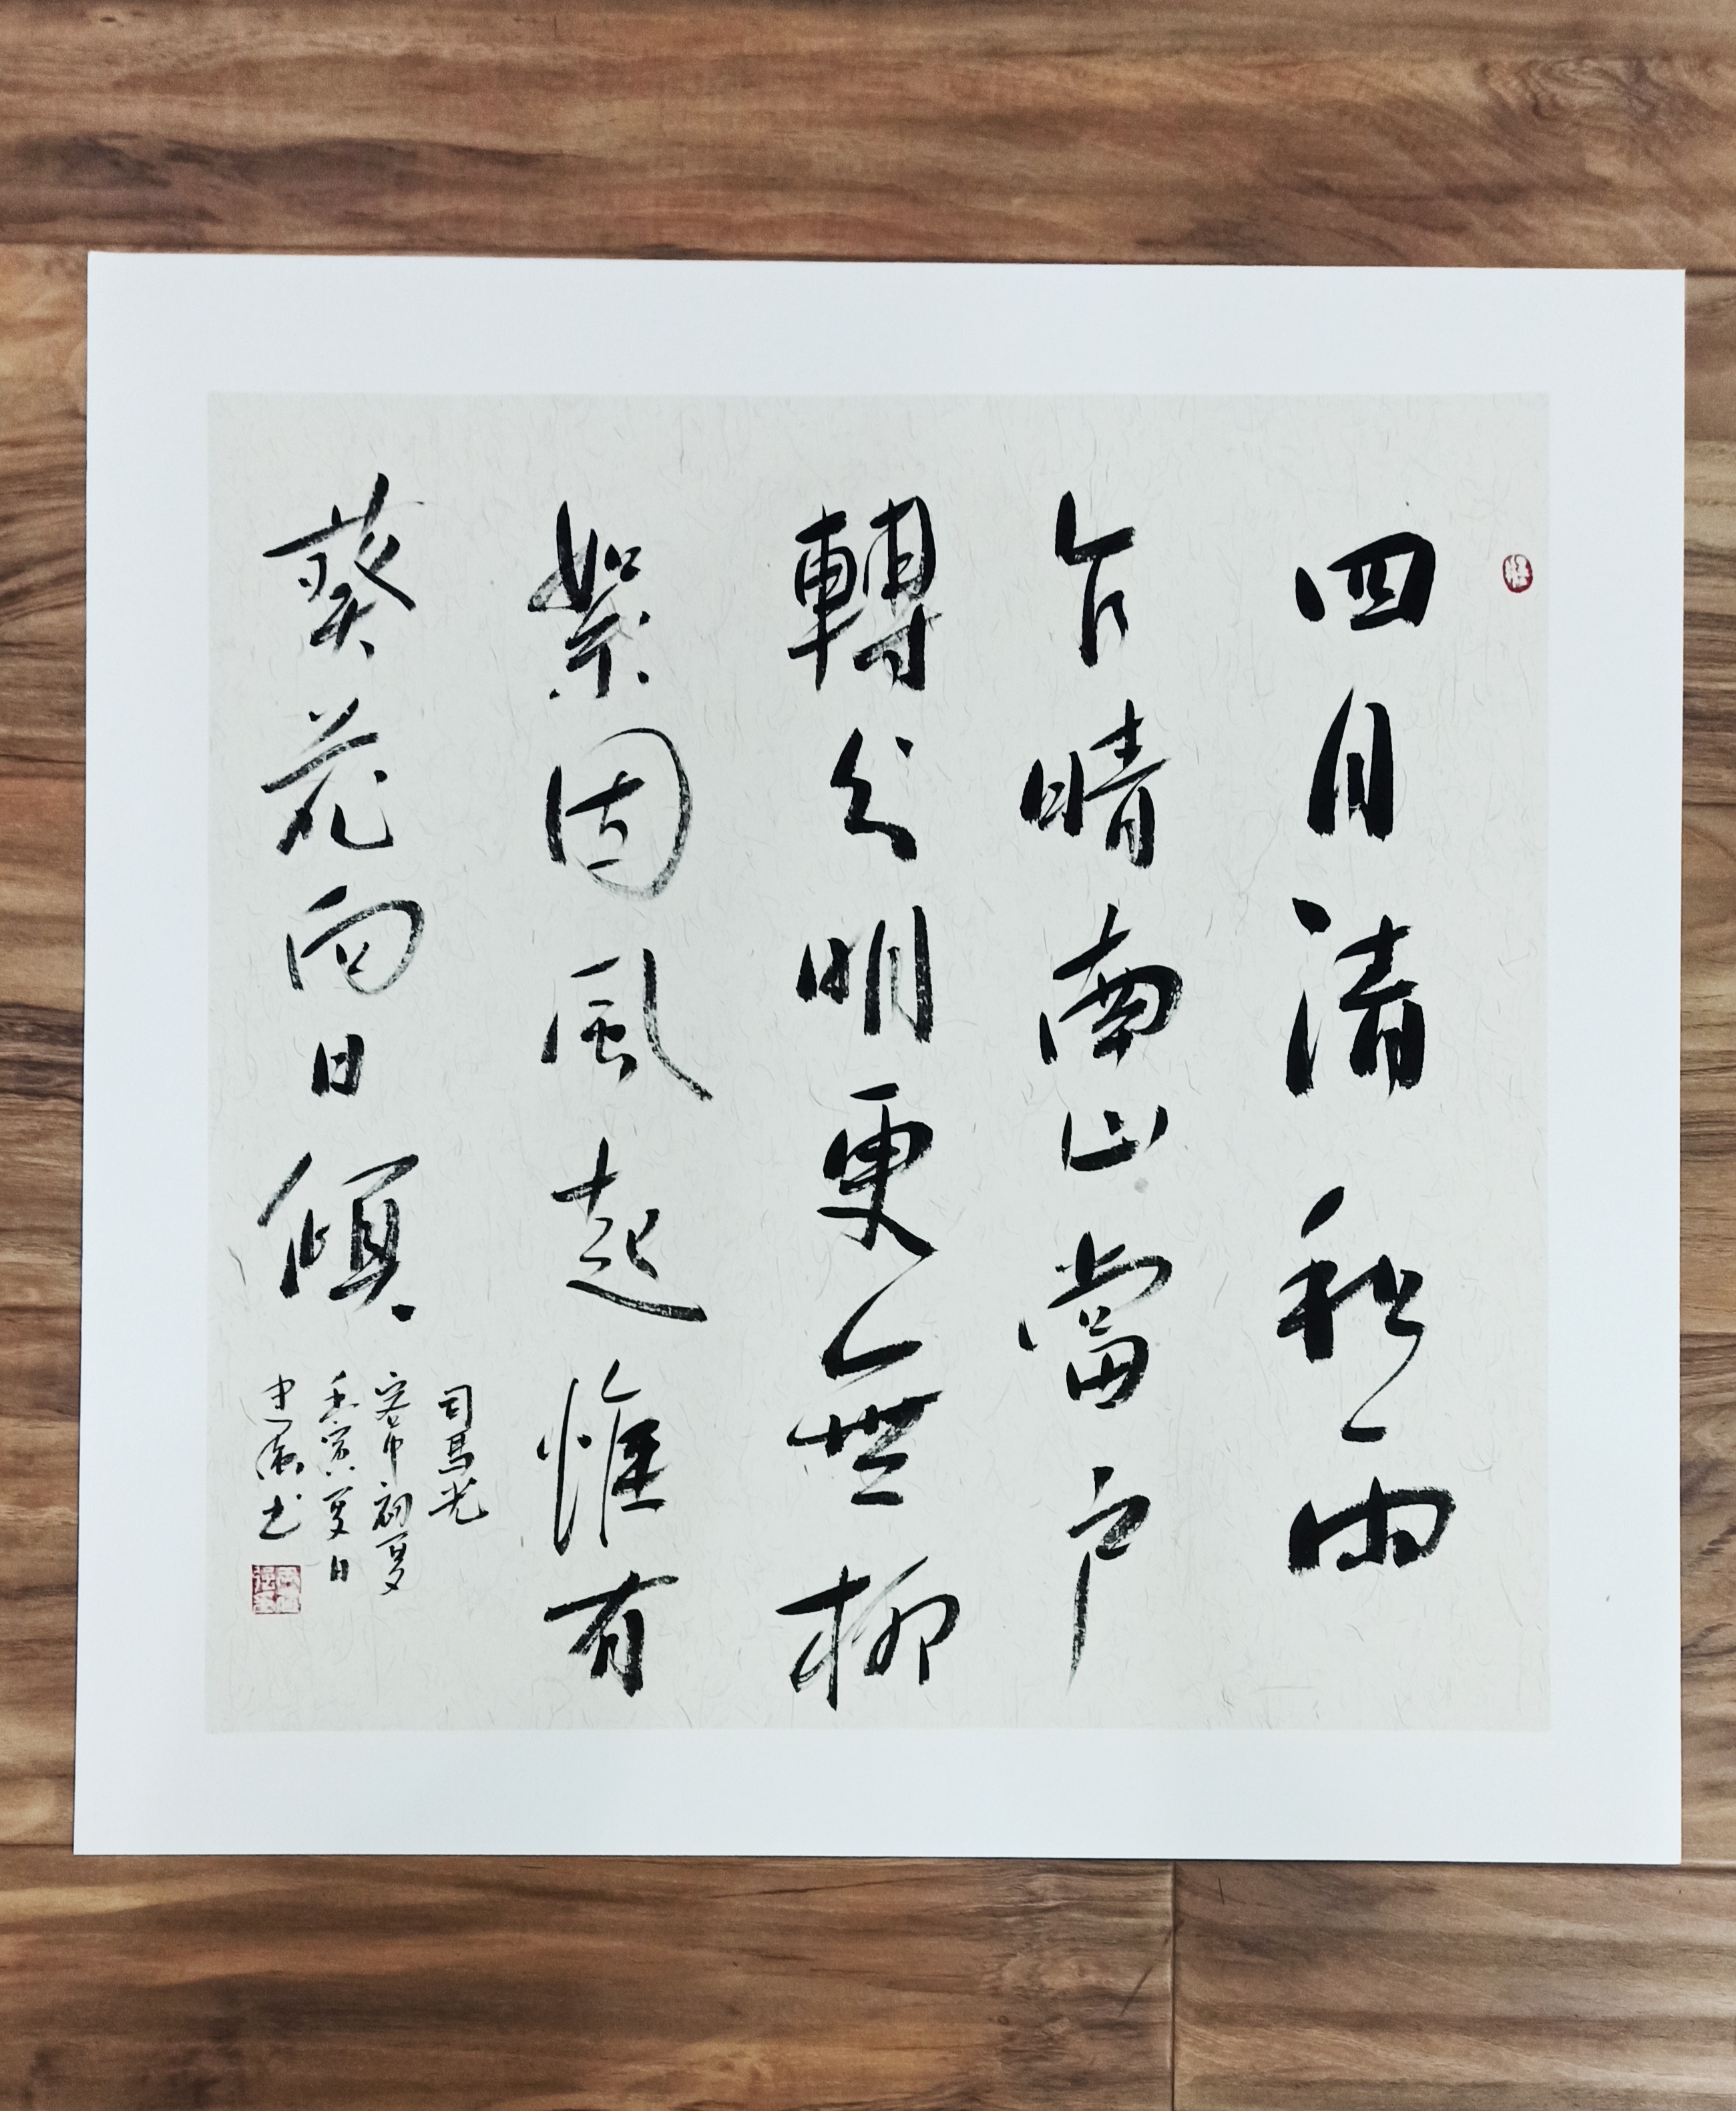 四月清和雨
乍晴南山當户
轉分明更無柳
絮因風起惟有
葵花向日傾
司馬光
客中初夏
壬寅夏日
建书